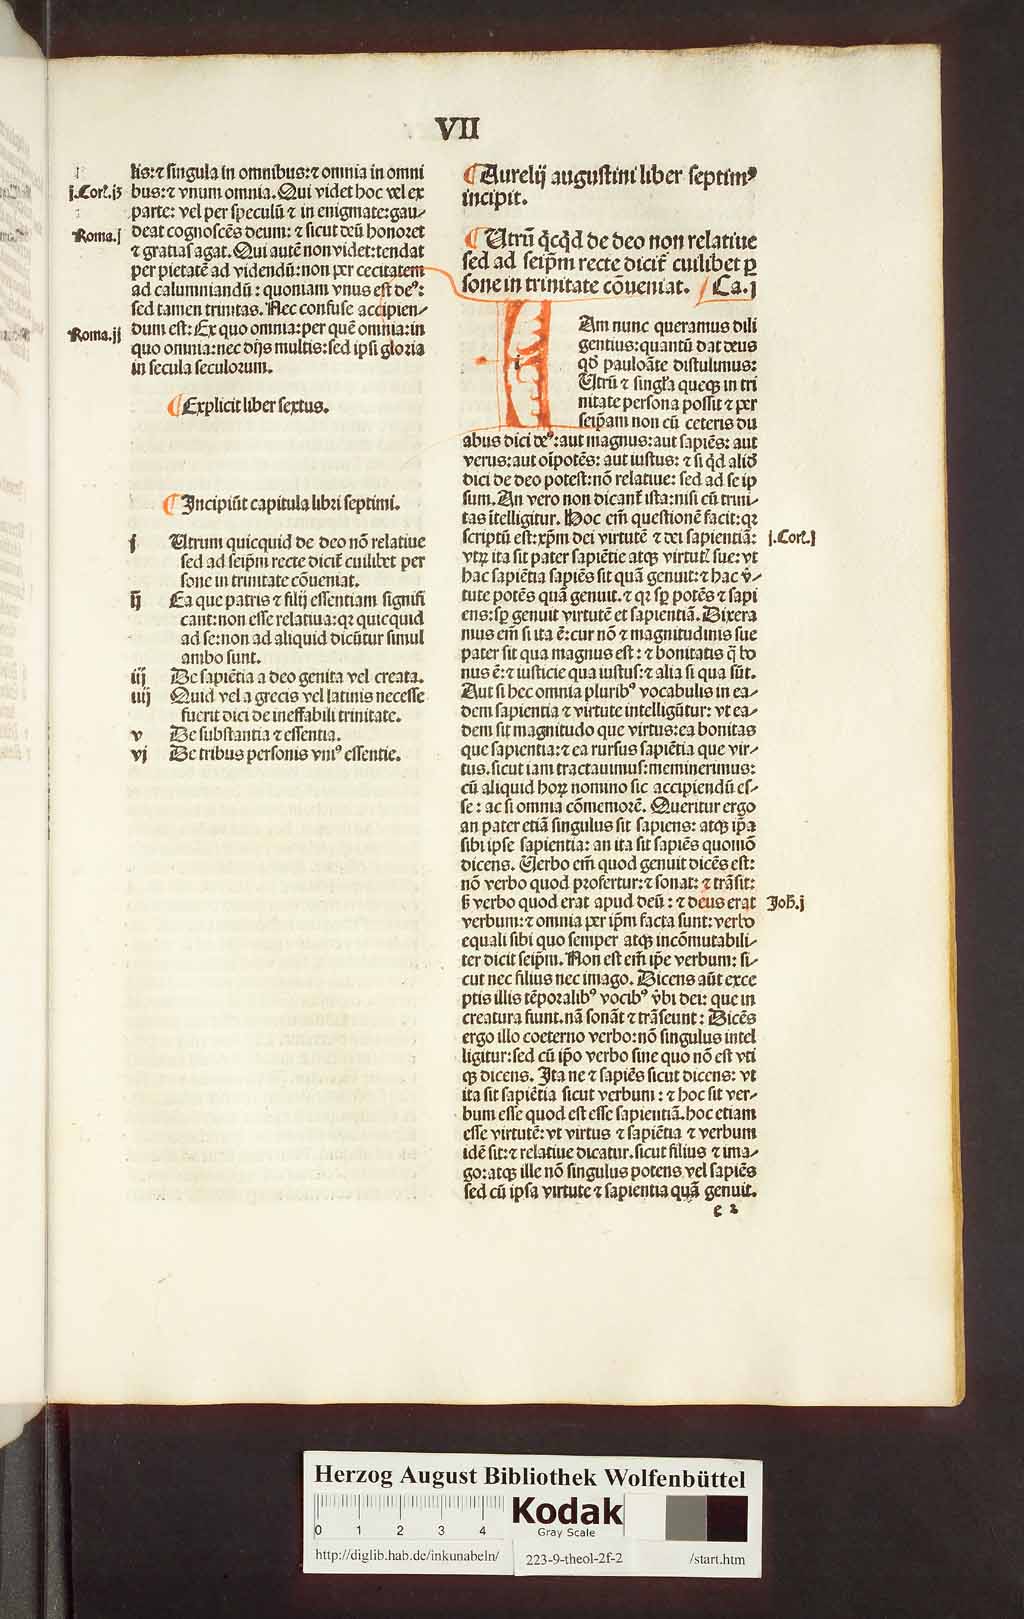 VII
lis:⁊ singula in omnibus:⁊ omnia in omni
j.Corī.iꝫ bus:⁊ vnum omnia. Qui videt hoc vel ex
parte: vel per speculū ⁊ in enigmate:gau-
Roma.j deat cognoscēs deum: ⁊ sicut deū honoret
⁊ gratias agat. Qui autē non videt:tendat
per pietatē ad videndū:non per cecitatem
ad calumniandū: quoniam vnus est deꝰ:
sed tamen trinitas. Nec confuse accipien-
Roma.ij dum est: Ex quo omnia:per quē omnia:in
quo omnia:nec dijs multis:sed ipsi gloria
in secula seculorum.
¶Explicit liber sextus.
¶Incipiūt capitula libri septimi.
j Utrum quicquid de deo nō relatiue
sed ad seip̄m recte dicit̄ cuilibet per
sone in trinitate cōueniat.
ij Ea que patris ⁊ filij essentiam signifi
cant:non esse relatiua:qꝛ quicquid
ad se:non ad aliquid dicūtur simul
ambo sunt.
iij De sapiētia a deo genita vel creata.
iiij Quid vel a grecis vel latinis necesse
fuerit dici de ineffabili trinitate.
v De substantia ⁊ essentia.
vj De tribus personis vniꝰ essentie.
¶Aurelij augustini liber septimꝰ
incipit.
¶Utrū q̇cq̇d de deo non relatiue
sed ad seip̄m recte dicit̄ cuilibet ꝑ
sone in trinitate cōueniat. Ca.j
I
Am nunc queramus dili
gentius:quantū dat deus
qḋ pauloāte distulimus:
Utrū ⁊ singl'a queqꝫ in tri
nitate persona possit ⁊ per
seip̄am non cū ceteris du
abus dici deꝰ:aut magnus:aut sapiēs: aut
verus:aut oīpotēs: aut iustus: ⁊ si q̇d aliḋ
dici de deo potest:nō relatiue: sed ad se ip
sum. An vero non dicant̄ ista:nisi cū trini-
tas ītelligitur. Hoc em̄ questionē facit:qꝛ
scriptū est:xp̄m dei virtutē ⁊ dei sapientiā: j.Corī.j
vtꝝ ita sit pater sapiētie atqꝫ virtutꝭ sue: vt
hac sapiētia sapiēs sit quā genuit:⁊ hac v̄-
tute potēs quā genuit.⁊ qꝛ sꝑ potēs ⁊ sapi
ens:sꝑ genuit virtutē et sapientiā. Dixera
mus em̄ si ita ē:cur nō ⁊ magnitudinis sue
pater sit qua magnus est: ⁊ bonitatis q̄ bo
nus ē:⁊ iusticie qua iustus:⁊ alia si qua sūt.
Aut si hec omnia pluribꝰ vocabulis in ea-
dem sapientia ⁊ virtute intelligūtur: vt ea-
dem sit magnitudo que virtus:ea bonitas
que sapientia:⁊ ea rursus sapiētia que vir-
tus.sicut iam tractauimus:meminerimus:
cū aliquid hoꝝ nomino sic accipiendū es-
se: ac si omnia cōmemorē. Queritur ergo
an pater etiā singulus sit sapiens: atqꝫ ip̄a
sibi ipse sapientia: an ita sit sapiēs quomō
dicens. Uerbo em̄ quod genuit dicēs est:
nō verbo quod profertur:⁊ sonat: ⁊ trāsit:
sꝫ verbo quod erat apud deū: ⁊ deus erat Joh̄.j
verbum:⁊ omnia per ip̄m facta sunt: verbo
equali sibi quo semper atqꝫ incōmutabili-
ter dicit seip̄m. Non est em̄ ip̄e verbum: si-
cut nec filius nec imago. Dicens aūt exce
ptis illis tēporalibꝰ vocibꝰ v̄bi dei: que in
creatura fiunt.nā sonāt ⁊ trāseunt: Dicēs
ergo illo coeterno verbo:nō singulus intel
ligitur:sed cū ip̄o verbo sine quo nō est vti
qꝫ dicens. Ita ne ⁊ sapiēs sicut dicens: vt
ita sit sapiētia sicut verbum: ⁊ hoc sit ver-
bum esse quod est esse sapientiā.hoc etiam
esse virtutē: vt virtus ⁊ sapiētia ⁊ verbum
idē sit:⁊ relatiue dicatur.sicut filius ⁊ ima-
go:atqꝫ ille nō singulus potens vel sapiēs
sed cū ipsa virtute ⁊ sapientia quā genuit.
e 2
Herzog August Bibliothek Wolfenbüttel
0 1 2 3 4
Kodak
Gray Scale
http://diglib.hab.de/inkunabeln/ 223-9-theol-2f-2 /start.htm